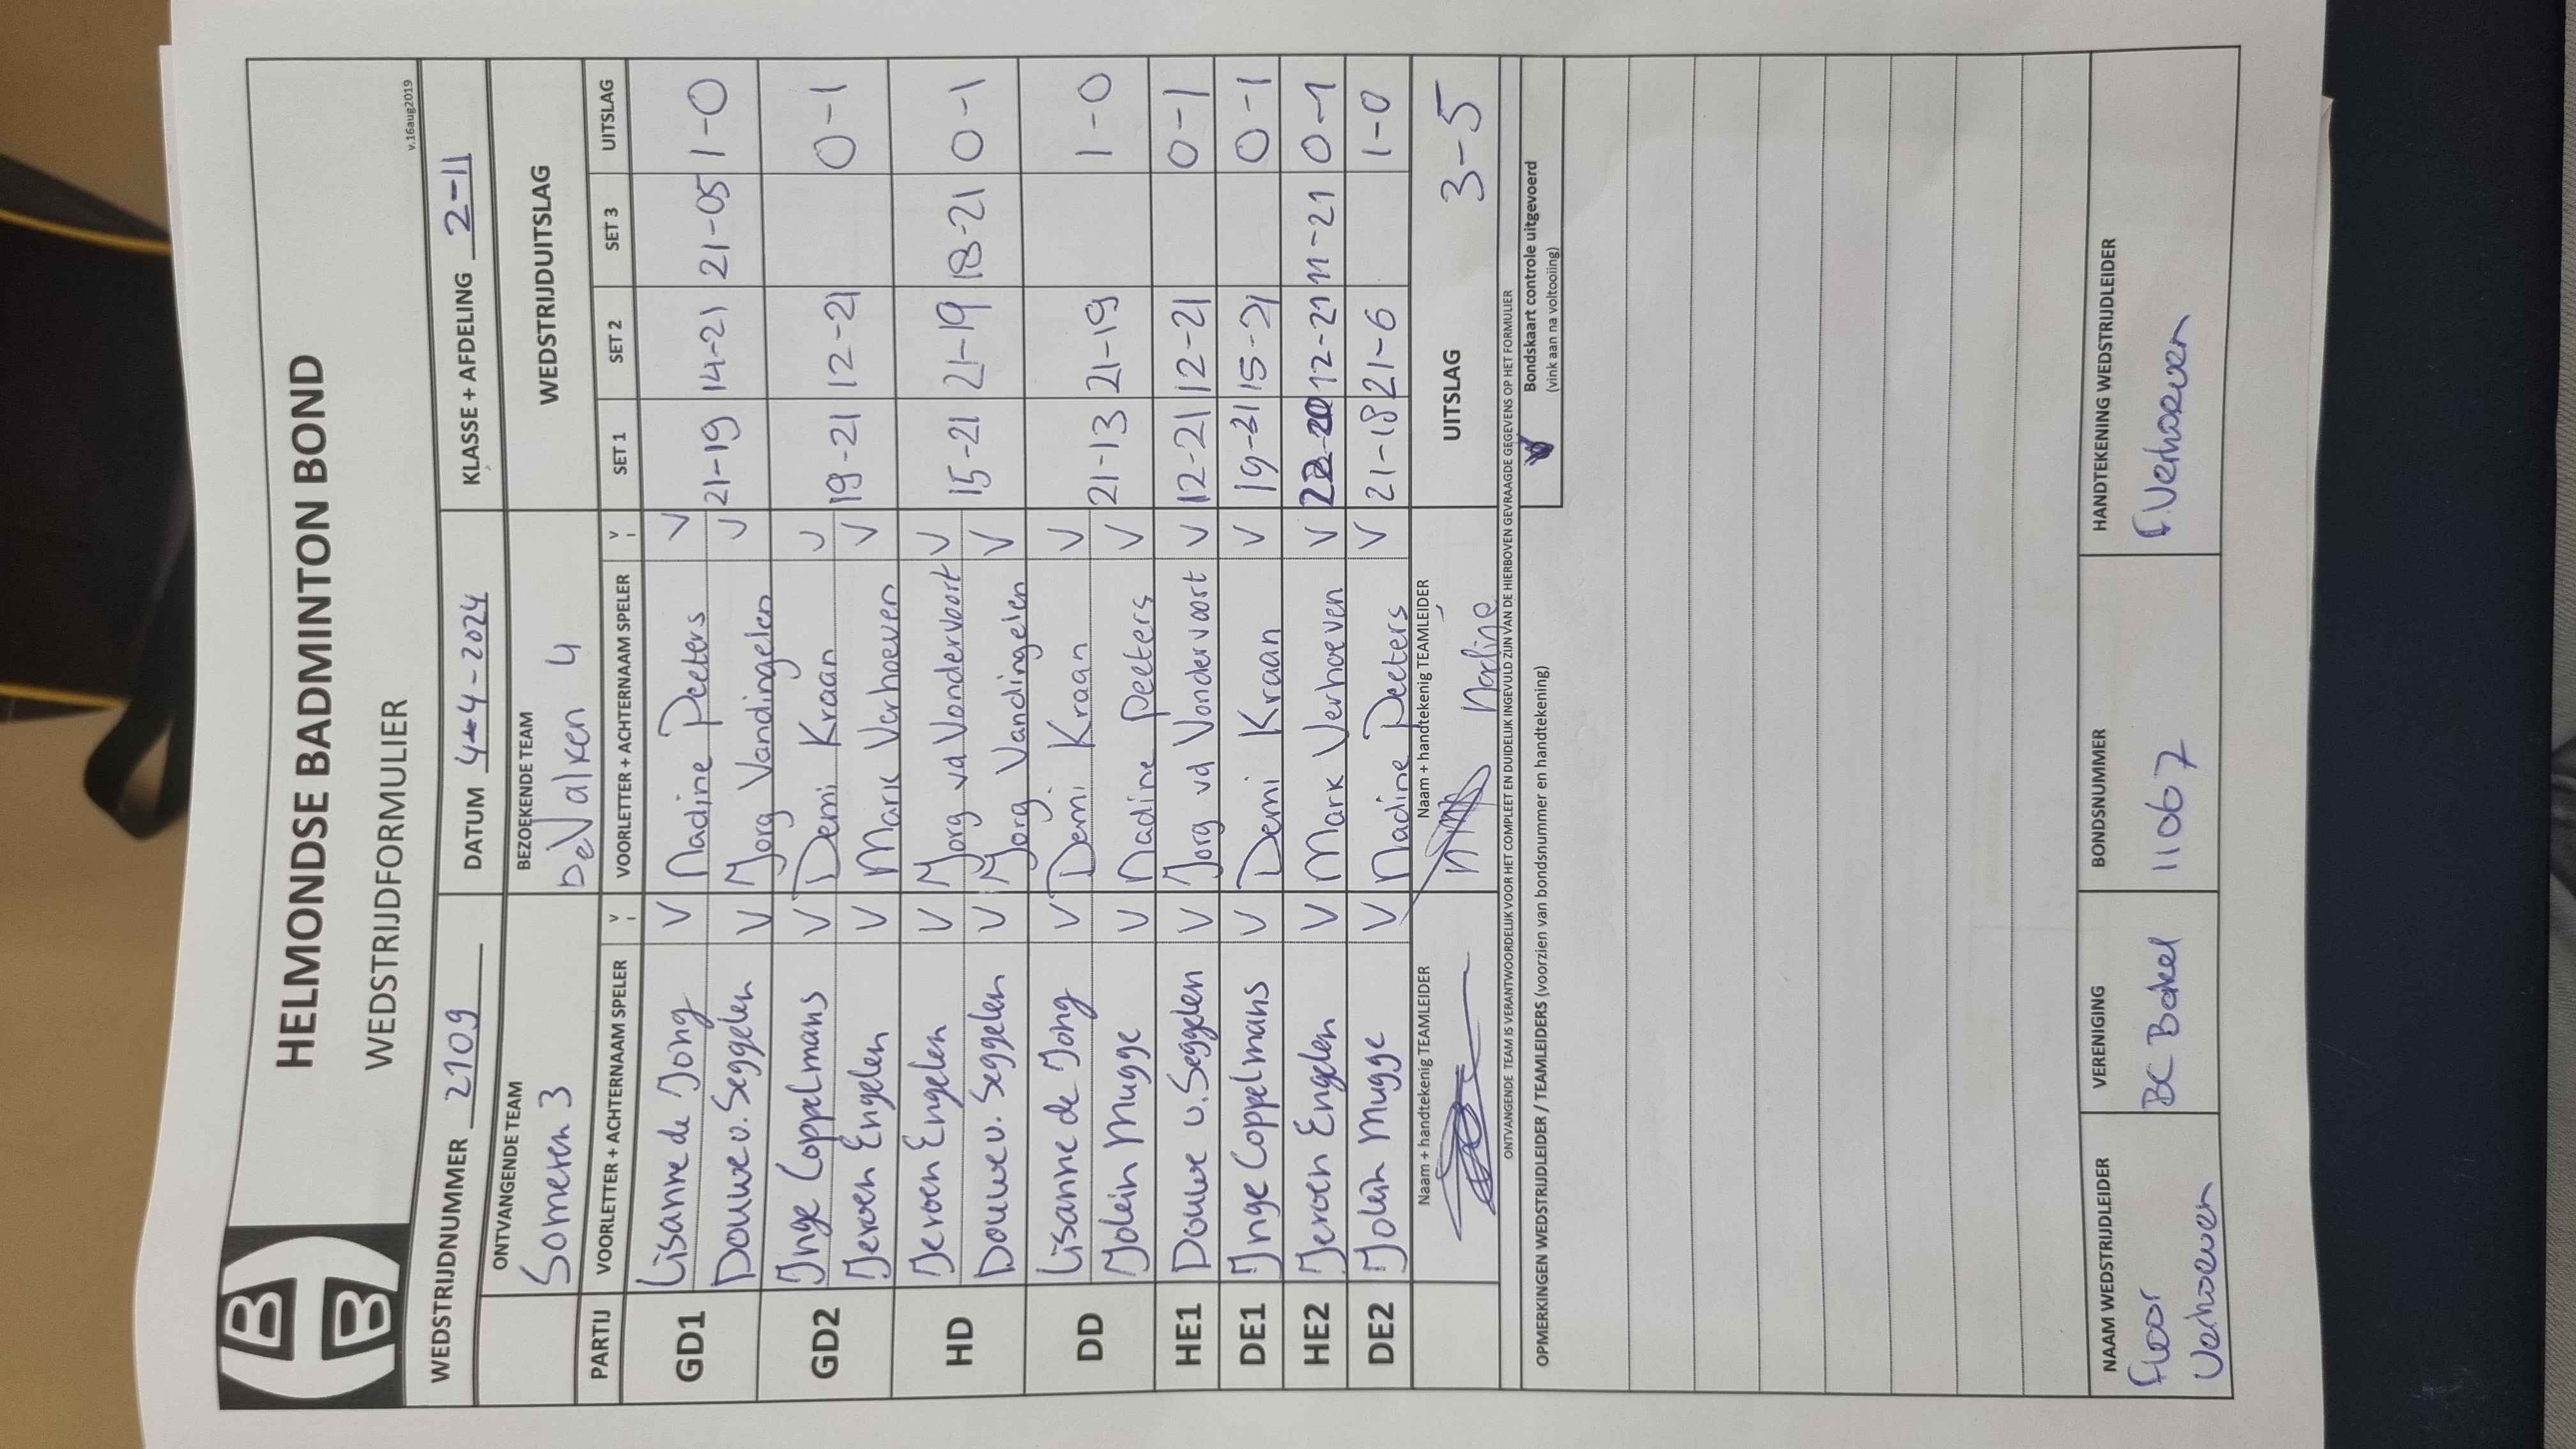 HELMONDSE BADMINTON BOND
WEDSTRIJDFORMULIER
v.16aug2019
WEDSTRIJDNUMMER 2109 DATUM 4-4-2024 KLASSE + AFDELING 2-11
ONTVANGENDE TEAM BEZOEKENDE TEAM WEDSTRIJDUITSLAG
Someren 3 De Valken 4
PARTIJ VOORLETTER + ACHTERNAAM SPELER V VOORLETTER + ACHTERNAAM SPELER V SET 1 SET 2 SET 3 UITSLAG
GD1 Lisanne de Jong V Nadine Peeters V
Douwe v. Seggelen V Jorg Vandingelen V 21-19 14-21 21-05 1-0
GD2 Inge Coppelmans V Demi Kraan V
Jeroen Engelen V Mark Verhoeven V 19-21 12-21 0-1
HD Jeroen Engelen V Jorg vd Vondervoort V
Douwe v. Seggelen V Jorg Vandingelen V 15-21 21-19 18-21 0-1
DD Lisanne de Jong V Demi Kraan V
Jolein Mugge V Nadine Peeters V 21-13 21-19 1-0
HE1 Douwe v. Seggelen V Jorg vd Vondervoort V 12-21 12-21 0-1
DE1 Inge Coppelmans V Demi Kraan V 19-21 15-21 0-1
HE2 Jeroen Engelen V Mark Verhoeven V 22-20 12-21 11-21 0-1
DE2 Jolein Mugge V Nadine Peeters V 21-18 21-6 1-0
Naam + handtekenig TEAMLEIDER Naam + handtekenig TEAMLEIDER UITSLAG 3-5
Nadine
ONTVANGENDE TEAM IS VERANTWOORDELIJK VOOR HET COMPLEET EN DUIDELIJK INGEVULD ZIJN VAN DE HIERBOVEN GEVRAAGDE GEGEVENS OP HET FORMULIER
OPMERKINGEN WEDSTRIJDLEIDER / TEAMLEIDERS (voorzien van bondsnummer en handtekening) V Bondskaart controle uitgevoerd
(vink aan na voltooiing)
NAAM WEDSTRIJDLEIDER VERENIGING BONDSNUMMER HANDTEKENING WEDSTRIJDLEIDER
Floor
Verhoeven BC Bakel 11067 F. Verhoeven